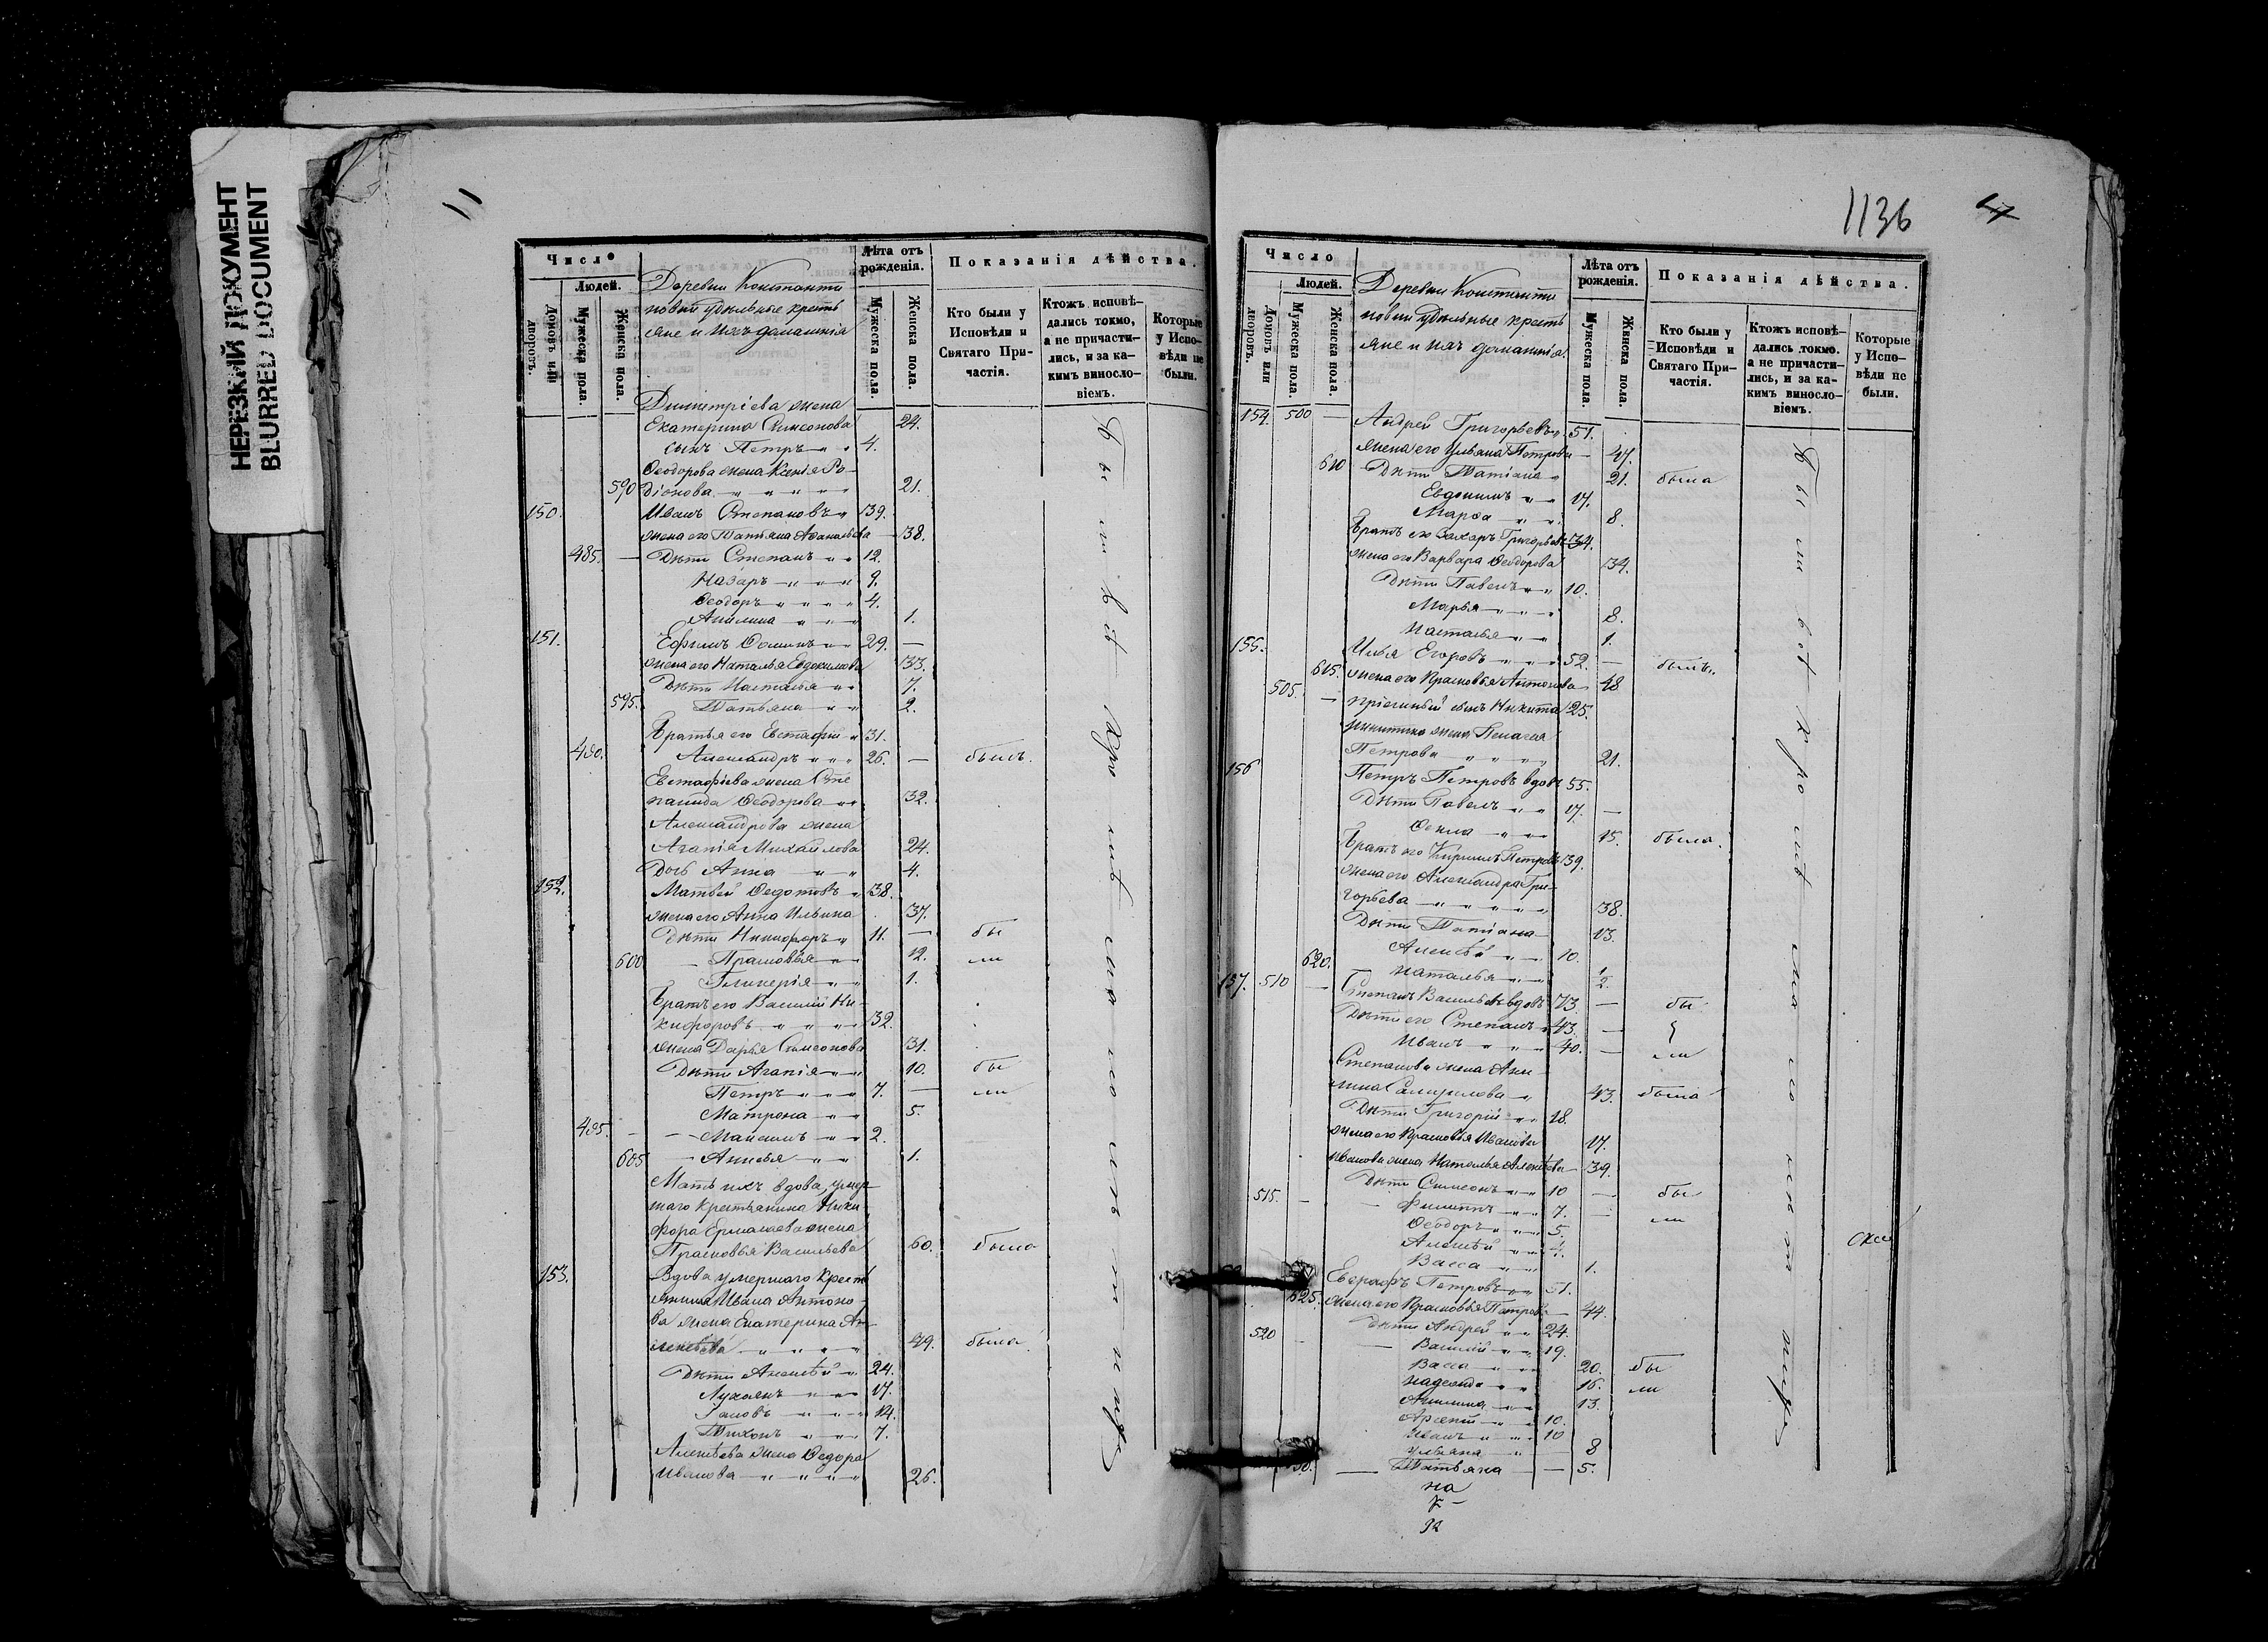 НЕРЕЗКИЙ ДОКУМЕНТ
BLURRED DOCUMENT
11
Число
Людей.
Домовъ или дворовъ.
Мужеска пола.
Женска пола.
Деревни Константи
новки удѣльные кресть
яне и ихъ домашніе
Лѣта отъ рожденія.
Мужеска пола.
Женска пола.
Показанія дѣйства.
Кто были у Исповѣди и Святаго При-
частія.
Ктожъ исповѣ-
дались токмо,
а не причасти-
лись, и за ка-
кимъ виносло-
віемъ.
Которые
у Испо-
вѣди не
были.
Димитріева жена
Екатерина Симеонова 24.
сынъ Петръ 4.
Ѳеодорова жена Ксенія Ро-
590 діонова 21.
150. Иванъ Степановъ 39.
жена его Татьяна 38.
485. — Дѣти Степанъ 12.
Назаръ 9.
Ѳеодоръ 4.
Акилина 1.
151. Ефимъ Ѳоминъ 29. —
жена его Наталья Евдокимова 33.
Дѣти Наталья 7.
595. Татьяна 2.
Братья его Евстафій 31.
490. Александръ 26. — былъ.
Евстафіева жена Сте
панида Ѳеодорова 32.
Александрова жена
Агапія Михайлова 24.
Дочь Анна 4.
152. Матвей Ѳедотовъ 38.
жена его Анна Ильина 37.
Дѣти Никифоръ 11. — бы
600 — Прасковья 12. ли
Гликерія 1.
Братъ его Василій Ни-
кифоровъ 32.
жена Дарья Симеонова 31.
Дѣти Агапія 10. бы
Петръ 7. — ли
Матрона 5.
495. — Максимъ 2.
605 — Анисья 1.
Мать ихъ вдова, умер-
шаго крестьянина Ники
фора Ермолаева жена
Прасковья Васильева 60. была
153. Вдова умершаго крест
янина Ивана Антоно-
ва жена Екатерина А-
лексѣева 49. была
Дѣти Алексѣй 24.
Лукьянъ 17.
Іаковъ 14.
Тихонъ 7.
Алексѣева жена Ѳедора
Иванова 26.
1136
4
Число
Людей.
Домовъ или дворовъ.
Мужеска пола.
Женска пола.
Деревни Константи
новки удѣльные кресть
яне и ихъ домашніе.
Лѣта отъ рожденія.
Мужеска пола.
Женска пола.
Показанія дѣйства.
Кто были у
Исповѣди и
Святаго При-
частія.
Ктожъ исповѣ-
дались токмо.
а не причасти-
лись, и за ка-
кимъ виносло-
віемъ.
Которые
у Испо-
вѣди не
были.
154. 500 — Андрей Григорьевъ 51.
жена его Ульяна Петрова 47.
610 — Дѣти Татіана 21. была
Евдокимъ 17.
Марѳа 8.
Братъ его Захаръ Григорьевъ 34.
жена его Варвара Ѳеодорова 34.
Дѣти Павелъ 10.
Марья 8.
Наталья 1.
155. Илья Егоровъ 52. — былъ
615. жена его Прасковья Антонова 48
505. — пріемный сынъ Никита 25.
Никитина жена Пелагея
Петрова 21.
156 Петръ Петровъ вдовъ 55.
Дѣти Павелъ 17. —
Ѳекла 15. была.
Братъ его Кирилъ Петровъ 39.
жена его Александра Гри-
горьева 38.
Дѣти Татіана 13.
Алексѣй 10.
620. Наталья 1/2.
157. 510 — Степанъ Васильевъ вдовъ 73. — бы
Дѣти его Степанъ 43. —
Иванъ 40. — ли
Степанова жена Аки-
лина 43. была
Дѣти Григорій 18.
жена его Прасковья Иванова 17.
Иванова жена Наталья Алексѣева 39.
Дѣти Симеонъ 10 — бы
515. — Филиппъ 7. — ли
Ѳеодоръ 5.
Алексѣй 4.
Васса 1.
Евграфъ Петровъ 51.
625. жена его Прасковья Петрова 44.
Дѣти Андрей 24.
520 — Василій 19.
Васса 20. бы
Надежда 16. ли
Акилина 13.
Арсеній 10.
Иванъ 10
Ульяна 8
— Татьяна 5.
на